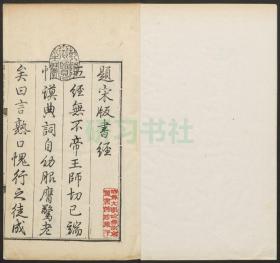 題宋版書經
五經無不帝王師切已端
惟謨典詞自幼服膺驚老
矣曰言熟口愧行之徒成
习书社